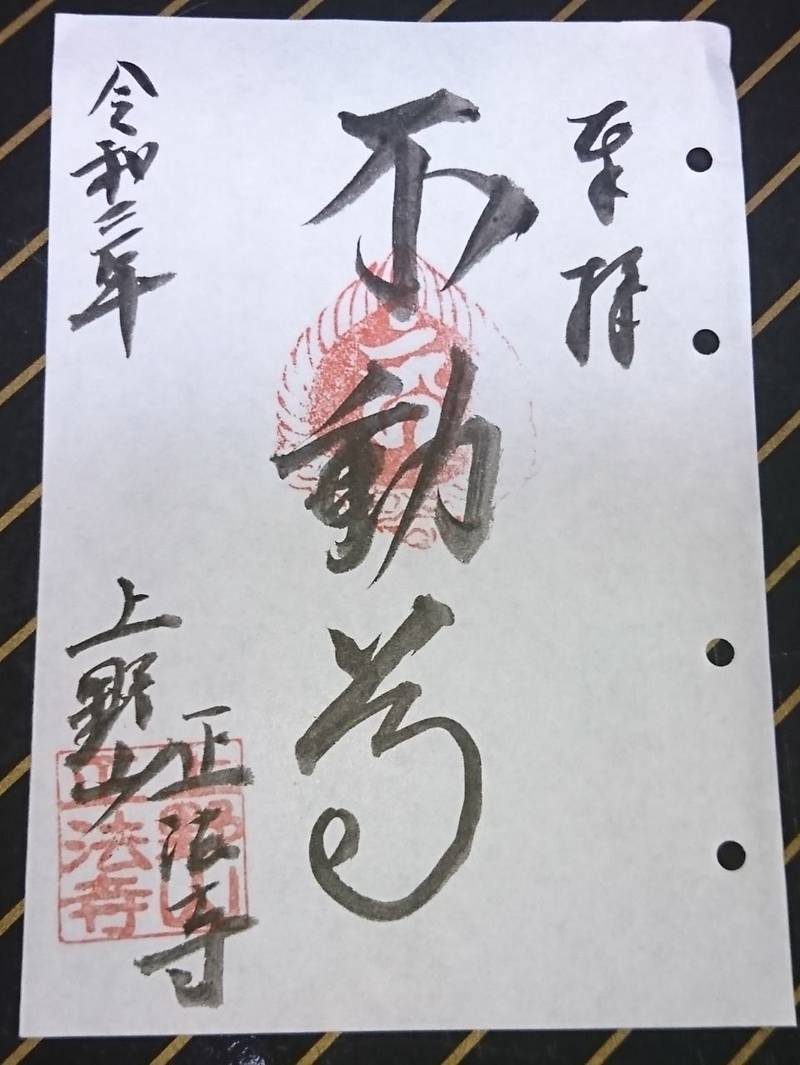 奉拝
不動尊
令和二年
上野山
正法寺
上野山
正法寺